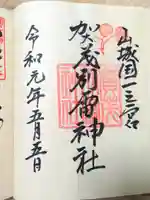 山城国一之宮
賀茂別雷神社
令和元年五月五日